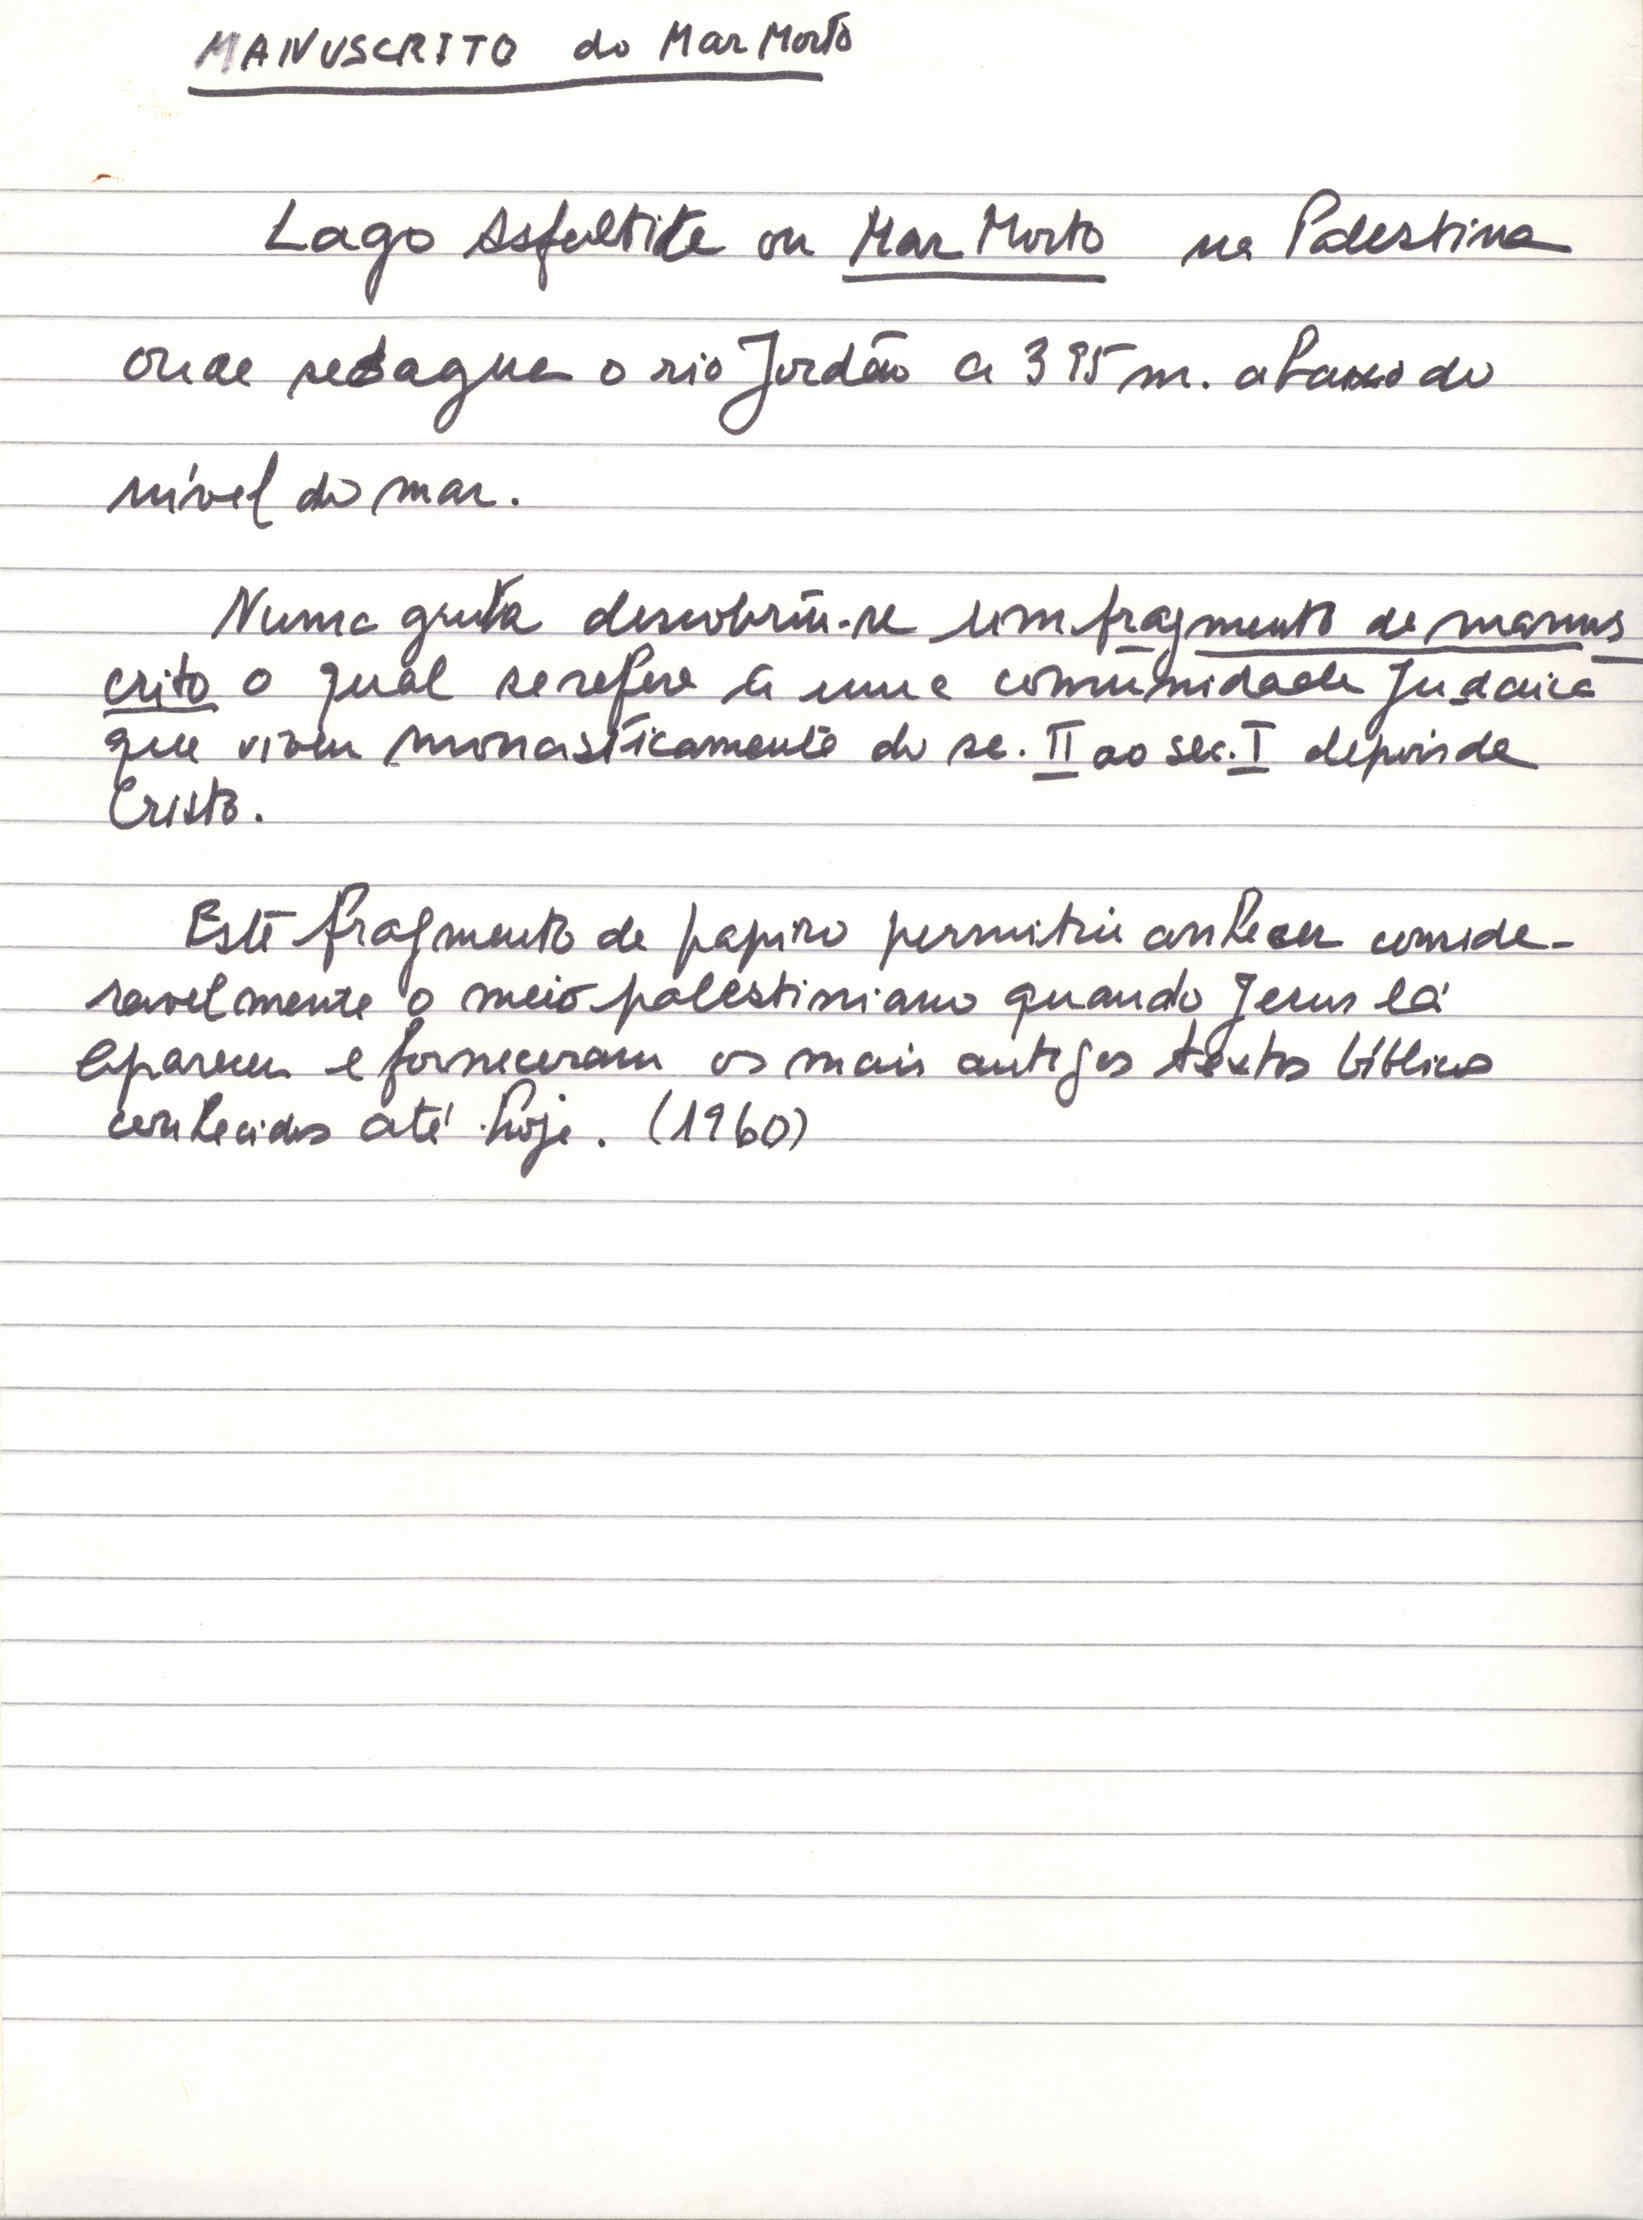 MANUSCRITO do Mar Morto
Lago Asfaltite ou Mar Morto na Palestina
onde sedagua o rio Jordão a 395 m. abaixo do
nível do mar.
Numa gruta descobriu-se um fragmento de manus
crito o qual se refere a uma comunidade Judaica
que viveu monasticamente do sc. II ao sec. I depois de
Cristo.
Este fragmento de papiro permitiu conhecer conside-
ravelmente o meio palestiniano quando Jesus lá
apareceu e forneceram os mais antigos textos bíblicos
conhecidos até hoje. (1960)